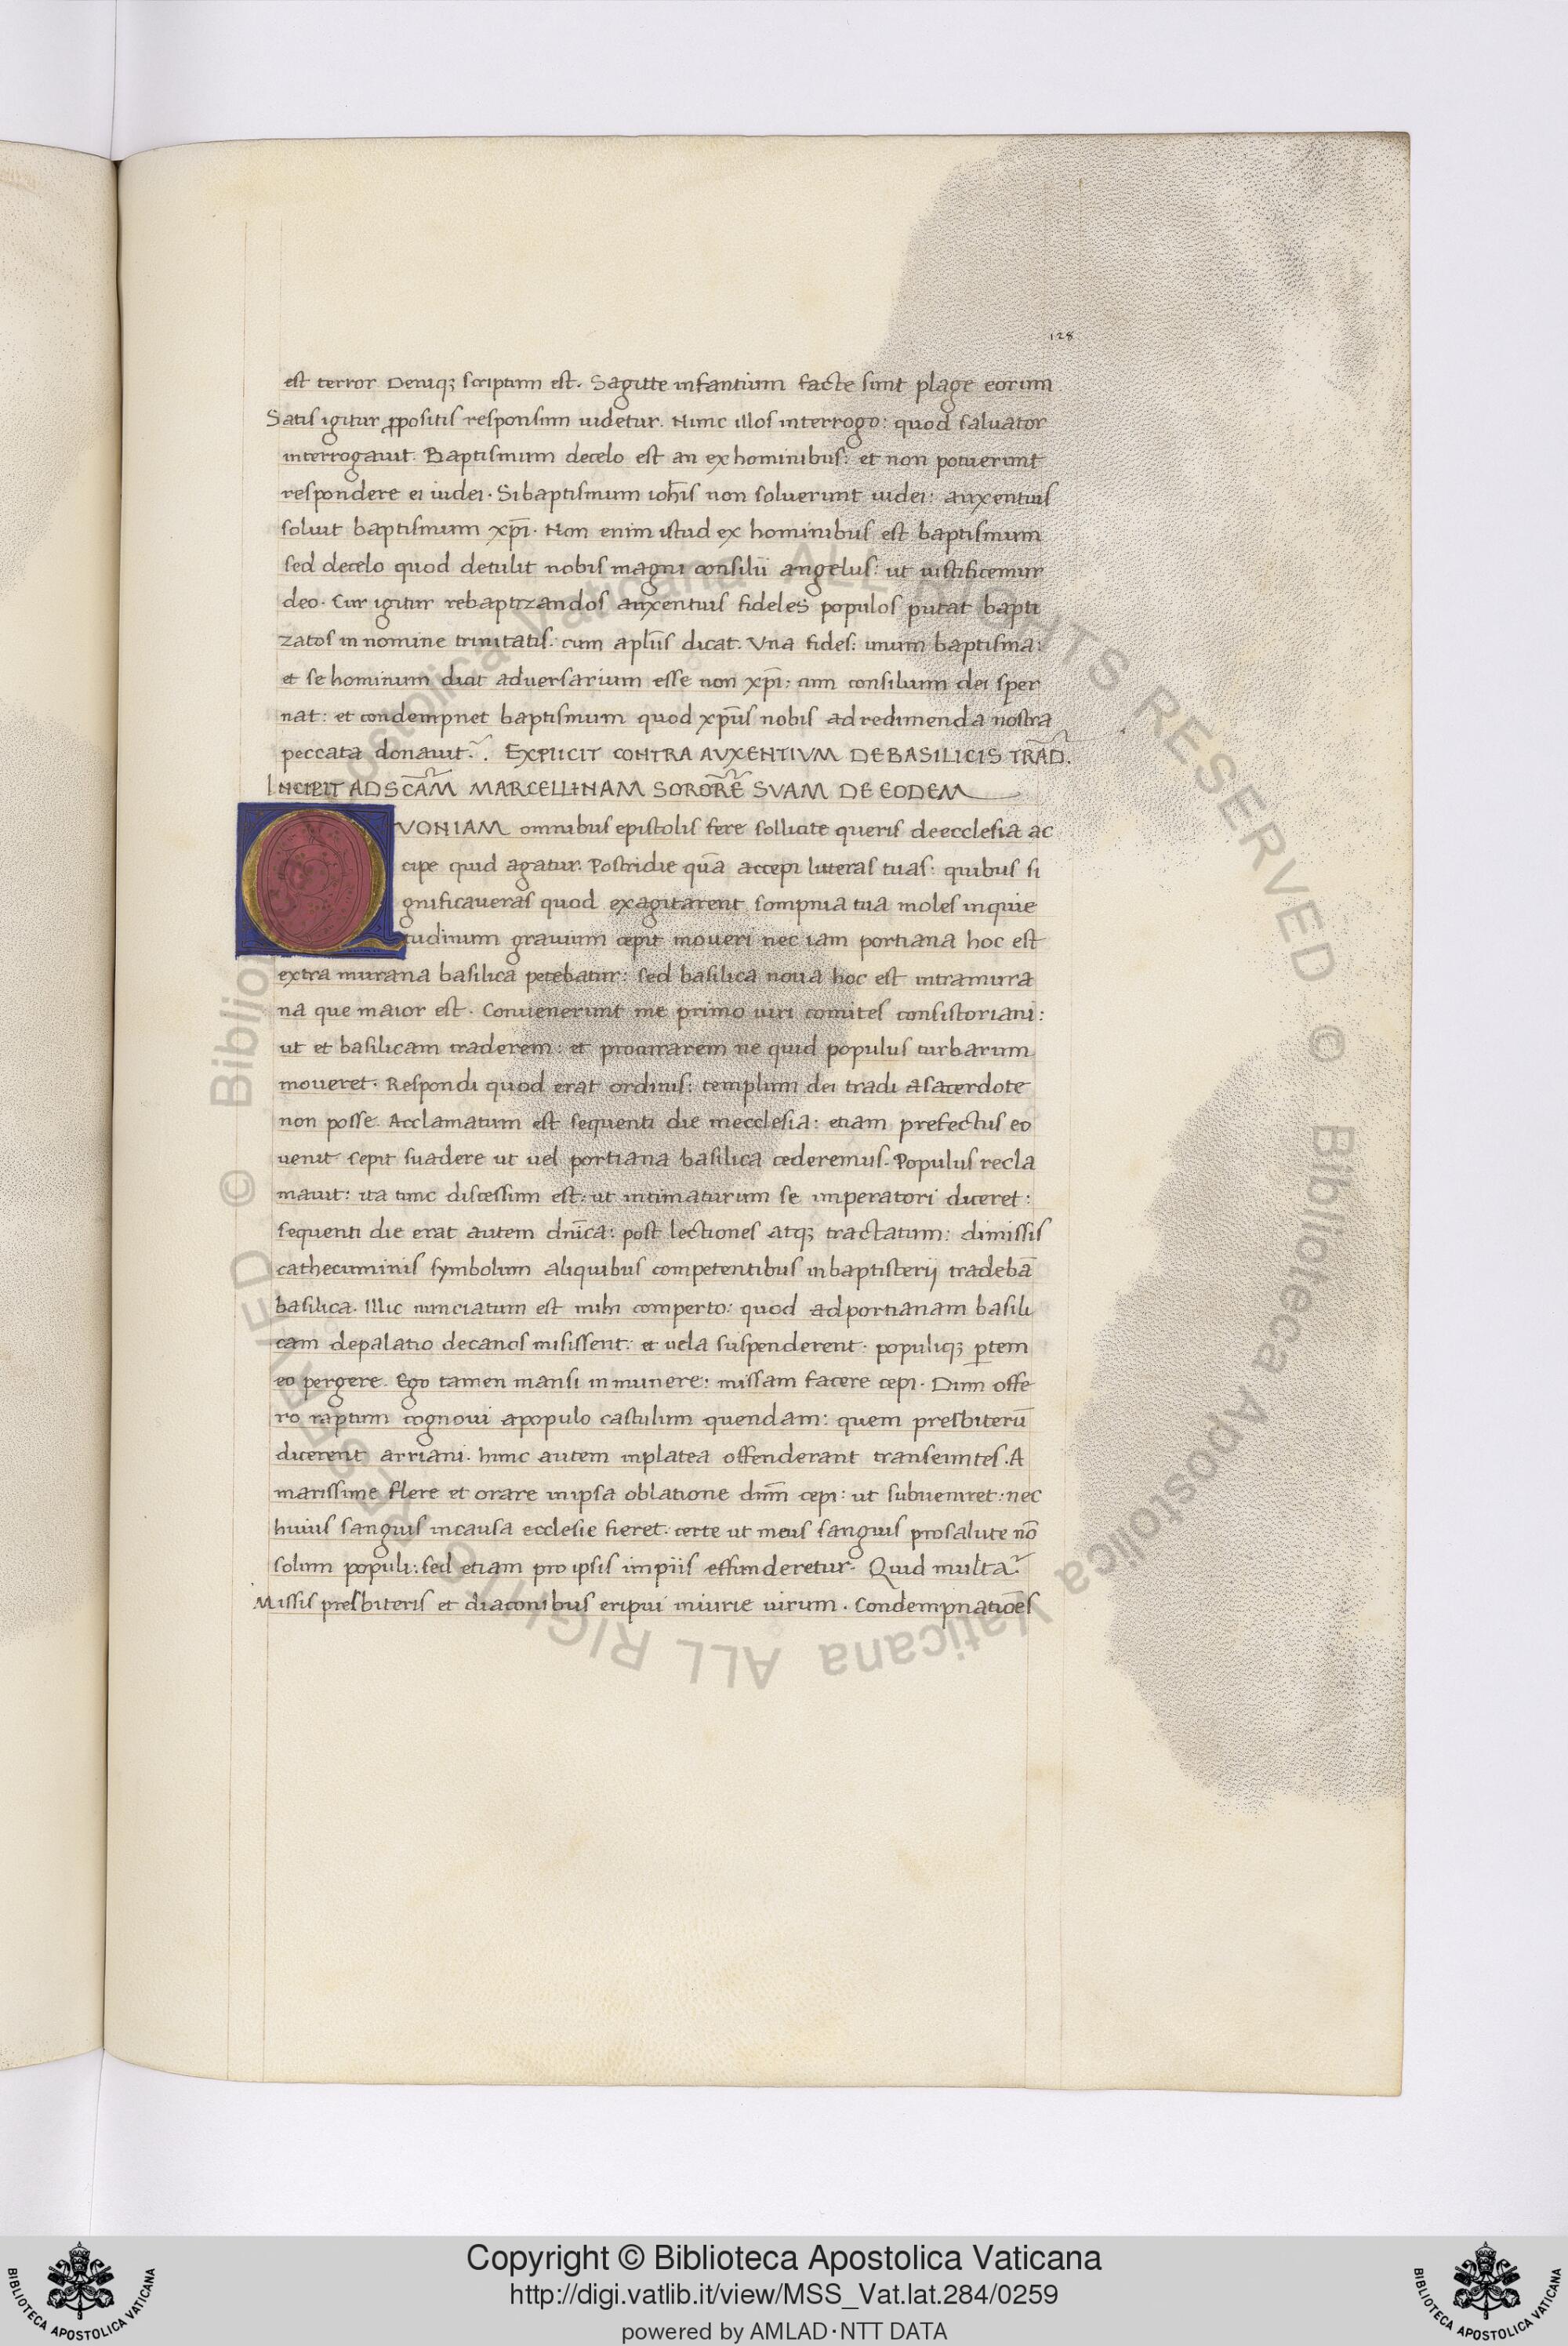 128
est terror. Deniq; scriptum est. Sagitte infantium facte sunt plage eorum
Satis igitur ꝓpositis responsum uidetur. Nunc illos interrogo: quod saluator
interrogauit. Baptismum decelo est an ex hominibus: et non potuerunt
respondere ei iudei. Si baptismum ioh̄is non soluerunt iudei: auxentius
soluit baptismum xp̄i. Non enim istud ex hominibus est baptismum
sed decelo quod detulit nobis magni consilii angelus: ut iustificemur
deo. Cur igitur rebaptizandos auxentius fideles populos putat bapti
zatos in nomine trinitatis. cum apl̄us dicat. Vna fides: unum baptisma:
et se hominum dicit aduersarium esse non xp̄i: cum consilium dei sper
nat: et condempnet baptismum quod xp̄us nobis ad redimenda nostra
peccata donauit. EXPLICIT CONTRA AVXENTIVM DEBASILICIS TRAD̄.
INCIPIT AD SCĀM MARCELLINAM SORORĒ SVAM DE EODEM
QVONIAM omnibus epistolis fere sollicite queris deecclesia ac
cipe quid agatur. Postridie quā accepi litteras tuas: quibus si
gnificaueras quod exagitarent sompnia tua moles inquie
tudinum grauium cepit moueri nec iam portiana hoc est
extra murana basilica petebatur: sed basilica noua hoc est intramura
na que maior est. Conuenerunt me primo uiri comites consistoriani:
ut et basilicam traderem: et procurarem ne quid populus turbarum
moueret. Respondi quod erat ordinis: templum dei tradi asacerdote
non posse. Acclamatum est sequenti die inecclesia: etiam prefectus eo
uenit cepit suadere ut uel portiana basilica cederemus. Populus recla
mauit: ita tunc discessum est: ut intimaturum se imperatori diceret:
sequenti die erat autem dn̄ica: post lectiones atq; tractatum: dimissis
cathecuminis symbolum aliquibus competentibus inbaptisterij tradebā
basilica. Illic nunciatum est mihi comperto: quod adportianam basili
cam depalatio decanos misissent: et uela suspenderent. populiq; ꝑtem
eo pergere. Ego tamen mansi in munere: missam facere cepi. Dum offe
ro raptum cognoui apopulo castulum quendam: quem presbiterū
dicerent arriani. hunc autem inplatea offenderant transeuntes. A
marissime flere et orare inipsa oblatione dn̄m cepi: ut subueniret: nec
huius sanguis incausa ecclesie fieret. certe ut meus sanguis prosalute nō
solum populi: sed etiam pro ipsis impiis effunderetur. Quid multa?
Missis presbiteris et diaconibus eripui iniurie uirum. Condempnatiōes
Copyright © Biblioteca Apostolica Vaticana
http://digi.vatlib.it/view/MSS_Vat.lat.284/0259
powered by AMLAD·NTT DATA
BIBLIOTECA APOSTOLICA VATICANA
BIBLIOTECA APOSTOLICA VATICANA
© Biblioteca Apostolica Vaticana ALL RIGHTS RESERVED © Biblioteca Apostolica Vaticana ALL RIGHTS RESERVED